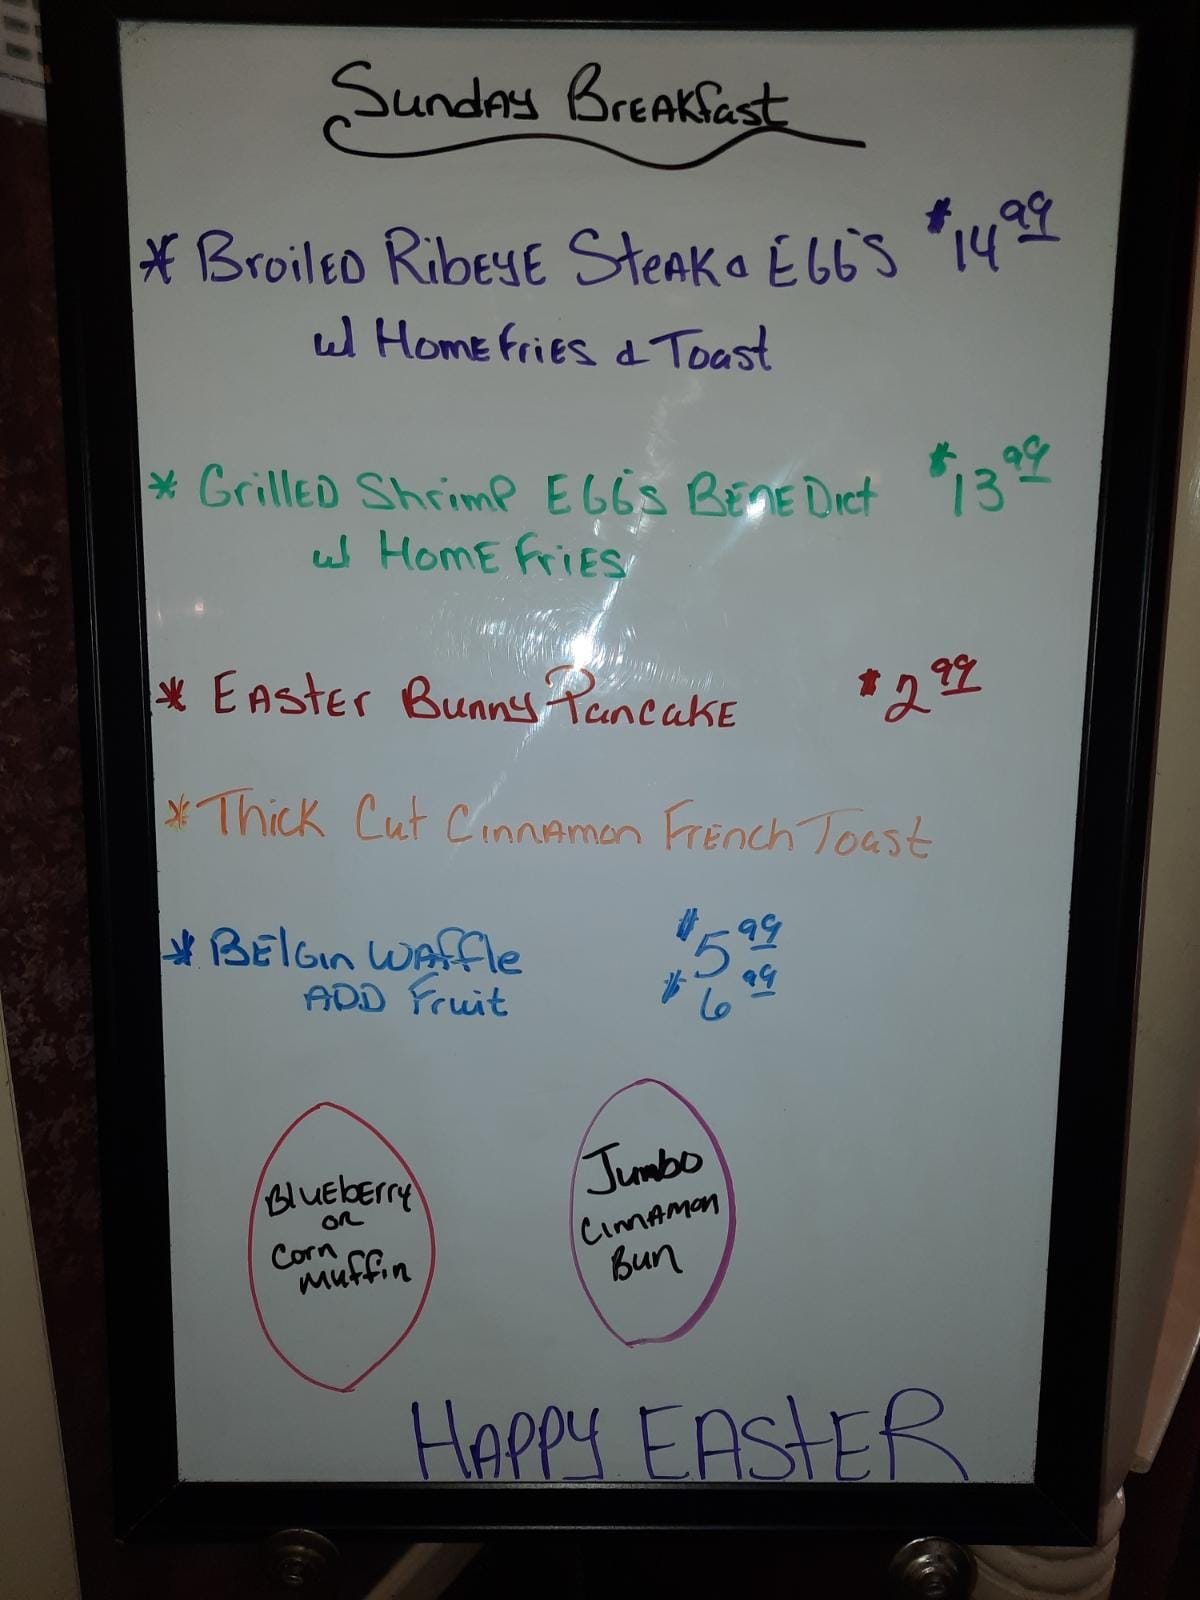 Sunday Breakfast
* Broiled Ribeye Steak & Egg's $14.99
w/ Home Fries & Toast
* Grilled Shrimp Egg's Benedict $13.99
w/ Home Fries
* Easter Bunny Pancake $2.99
* Thick Cut Cinnamon French Toast
* Belgin Waffle $5.99
ADD Fruit $6.99
Blueberry
or
Corn
Muffin
Jumbo
Cinnamon
Bun
HAPPY EASTER